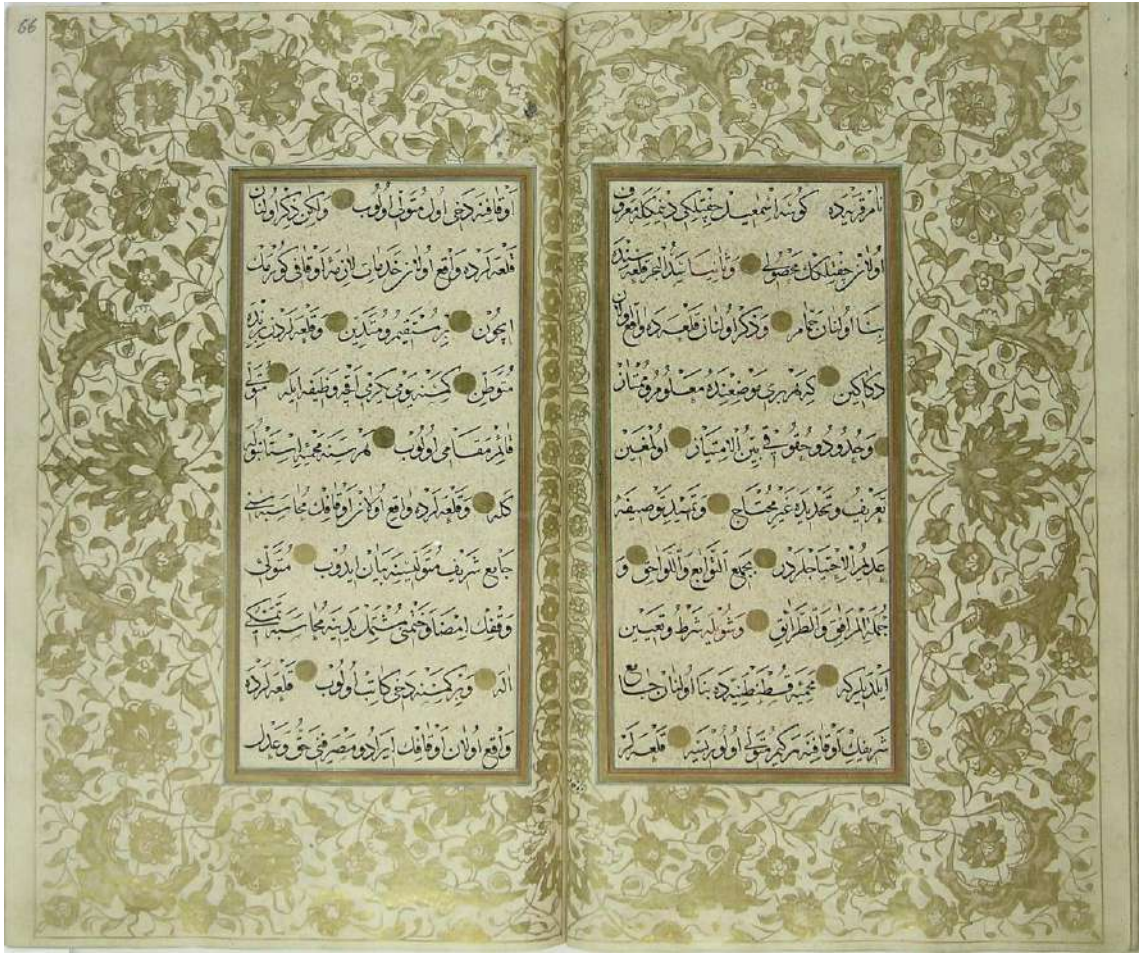 نام قریه ده کوننه اسمعیل جفتلکی دیمکله معروف
اولان جفتلکک محصولی وثانیا سدالبحر قلعه سنده
بنا اولنان حمام وذکر اولنان قلعه ده واقع اولان
دکاکین که هر بری موضعنده معلوم وممتاز
وحدود وحقوقی بین الامتیاز اولمغین
تعریف وتحدیده غیر محتاج وتمهید توصیفه
عدیم الاحتیاجلردر بجمیع التوابع واللواحق و
جملة المرافق والطرائق وشویله شرط وتعیین
ایلدیلر که محمیه قسطنطنیه ده بنا اولنان جامع
شریفک اوقافنه هر کیم متولی اولورسه قلعه لر
66
اوقافنه دخی اول متولی اولوب ولکن ذکر اولنان
قلعه لرده واقع اولان خدمات لازمه اوقافی کورمک
ایچون بر مستقیم ومتدین وقلعه لردن برنده
متوطن کمسنه یومی یکرمی اقچه وظیفه ایله متولی
قائم مقامی اولوب هر سنه محمیه استانبوله
کله وقلعه لرده واقع اولان اوقافک محاسبه سنی
جامع شریف متولیسنه بیان ایدوب متولئ
وقفک امضا وختمی مشتمل یدینه محاسبه تمسکی
اله وبر کمسنه دخی کاتب اولوب قلعه لرده
واقع اولان اوقافک ایراد ومصرفنی حق وعدل